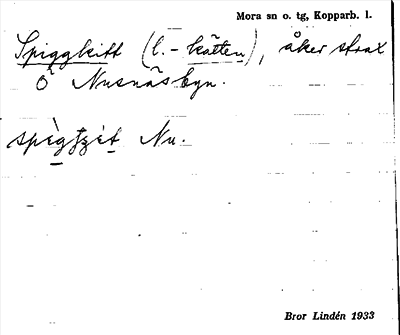 Mora sn o. tg, Kopparb. l.
Spiggkitt (l. - kätten), åker strax
Ö Nusnäsbyn.
Nu.
Bror Lindén 1933